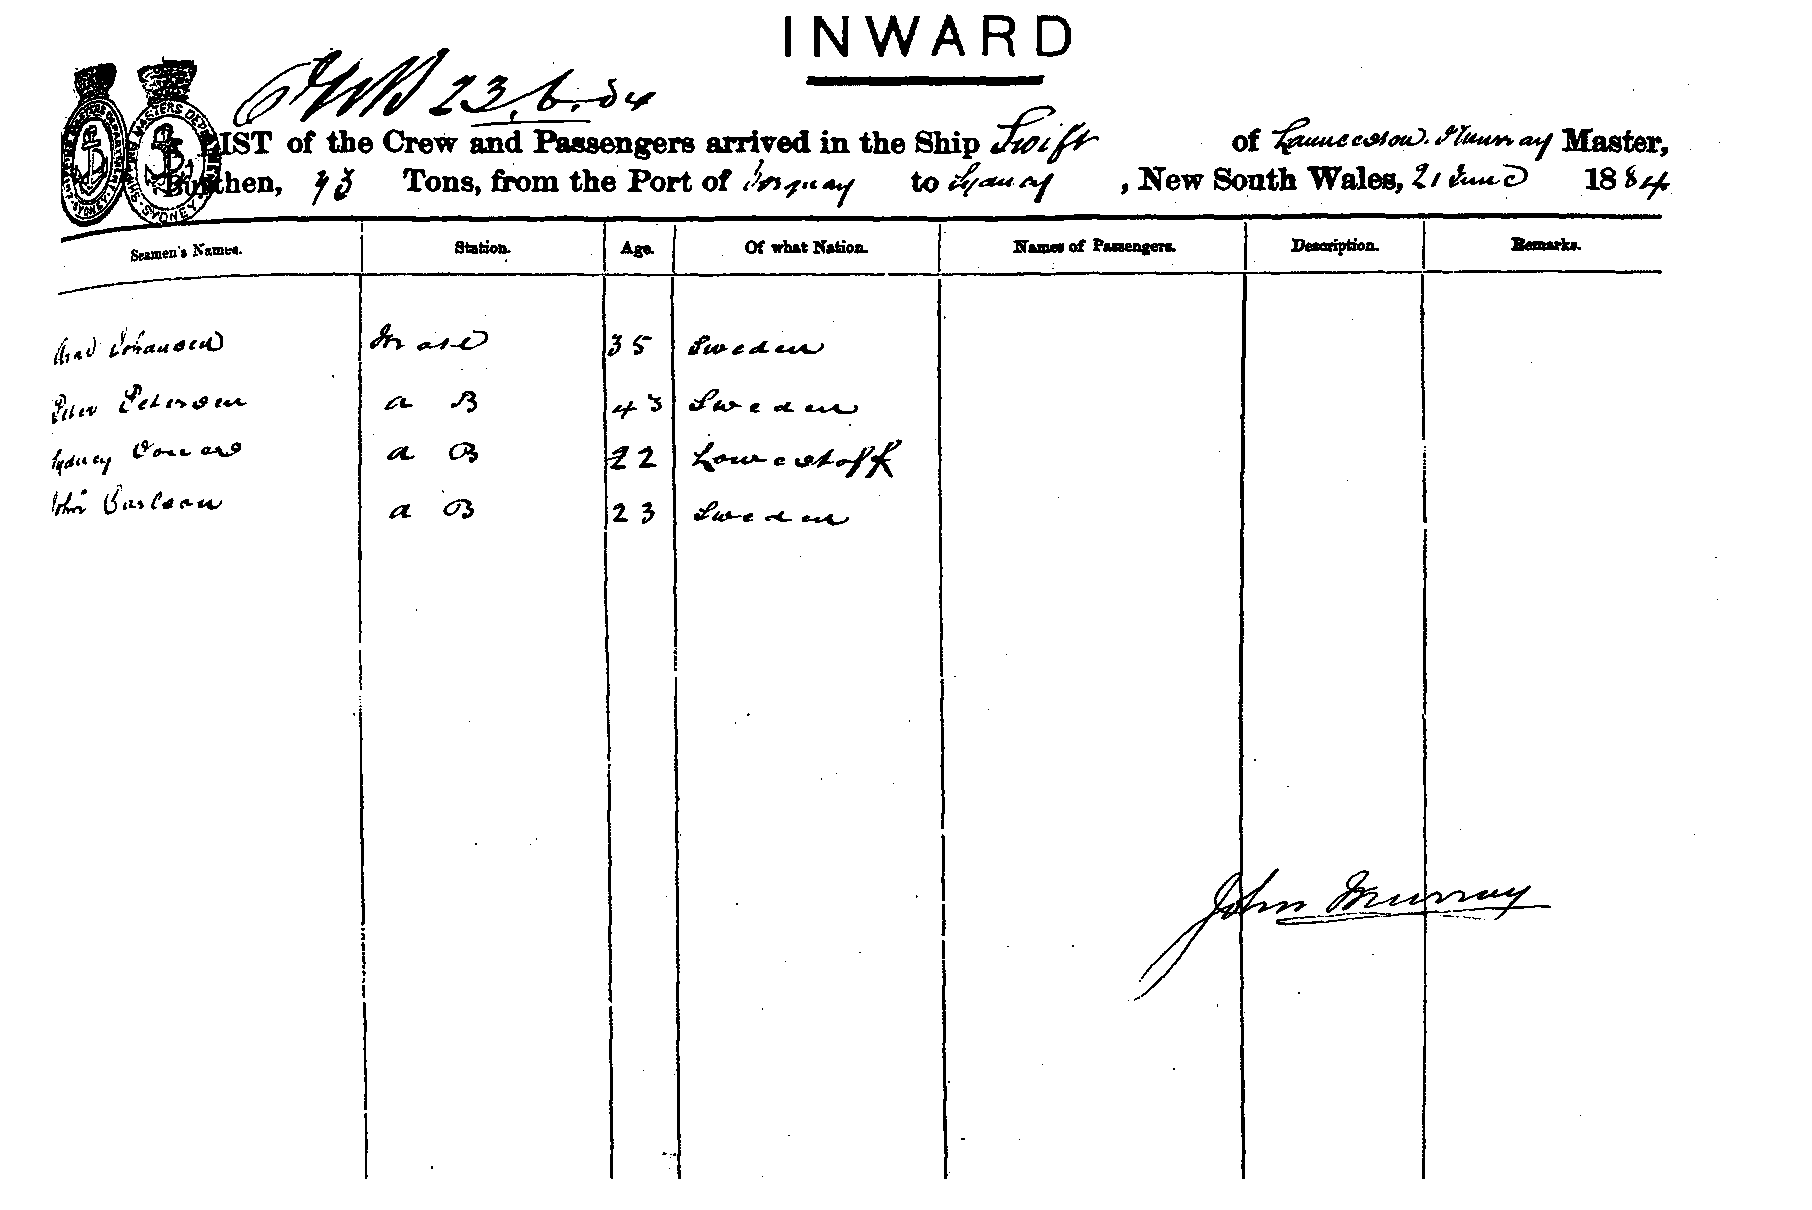 INWARD
23.6.84
LIST of the Crew and Passengers arrived in the Ship Swift of Launceston. J Murray Master,
Burthen, 93 Tons, from the Port of Torquay to Sydney, New South Wales, 21 June 1884
Seamen's Names. Station. Age. Of what Nation. Names of Passengers. Description. Remarks.
Johansen Mate 35 Sweden
Peter Peterson a B 43 Sweden
Sydney a B 22 Lowestoff
John a B 23 Sweden
John Murray